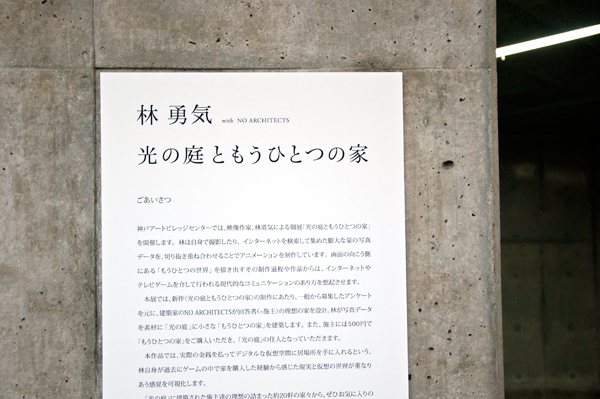 林 勇気 with NO ARCHITECTS
光の庭ともうひとつの家
ごあいさつ
神戸アートビレッジセンターでは、映像作家、林勇気による個展「光の庭ともうひとつの家」
を開催します。林は自身で撮影したり、インターネットを検索して集めた膨大な量の写真
データを、切り抜き重ね合わせることでアニメーションを制作しています。画面の向こう側
にある「もうひとつの世界」を描き出すその制作過程や作品からは、インターネットや
テレビゲームを介して行われる現代的なコミュニケーションのあり方を想起させます。
本展では、新作《光の庭ともうひとつの家》の制作にあたり、一般から募集したアンケート
を元に、建築家のNO ARCHITECTSが回答者(=施主)の理想の家を設計。林が写真データ
を素材に「光の庭」に小さな「もうひとつの家」を建築します。また、施主には500円で
「もうひとつの家」をご購入いただき、「光の庭」の住人となっていただきます。
本作品では、実際の金銭を払ってデジタルな仮想空間に居場所を手に入れるという、
林自身が過去にゲームの中で家を購入した経験から感じた現実と仮想の世界が重なり
あう感覚を可視化します。
「光の庭」に建築された施主達の理想の詰まった約20軒の家々から、ぜひお気に入りの